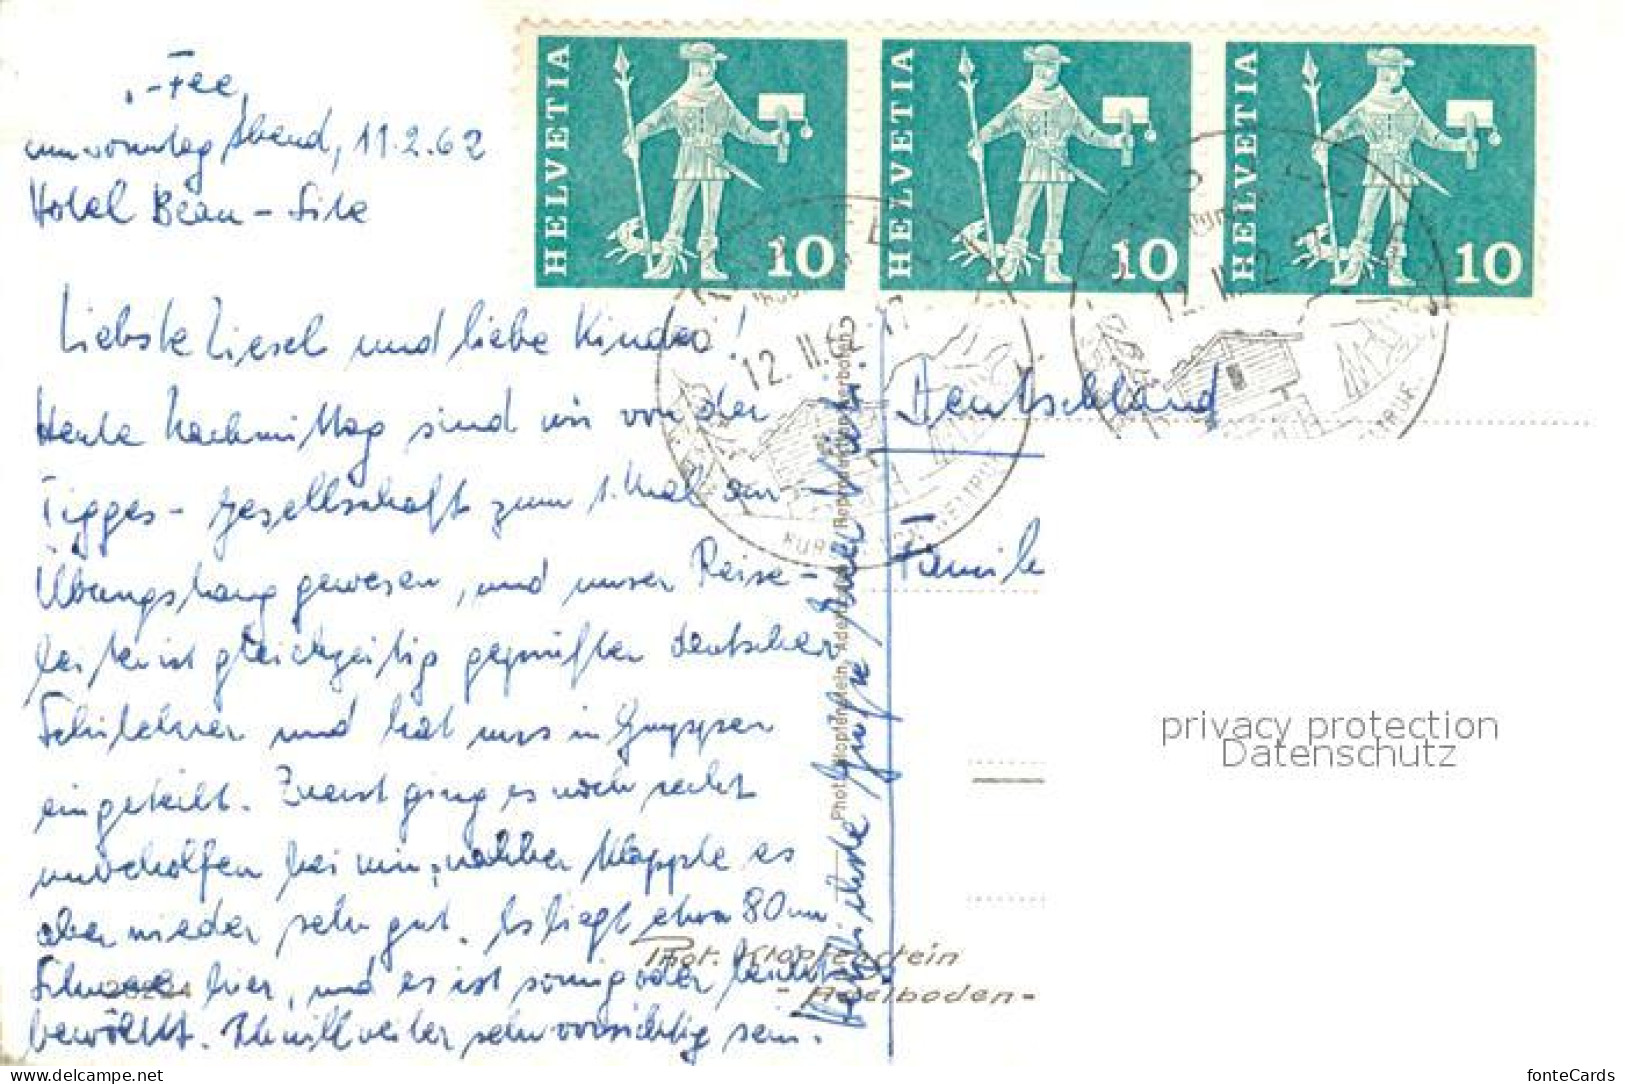 -Fee,
Sonntag Abend, 11.2.62
Hotel Beau-Site
HELVETIA 10
HELVETIA 10
HELVETIA 10
12. II. 62
12. II. 62
Liebste Liesel und liebe Kinder!
Heute Nachmittag sind wir von der
Tigges-Gesellschaft zum 1. Mal am
Übungshang gewesen, und unser Reise-
leiter ist gleichzeitig geprüfter deutscher
Schilehrer und hat uns in Gruppen
eingeteilt. Zuerst ging es noch recht
unbeholfen bei mir, nachher klappte es
aber wieder sehr gut. Es liegt etwa 80 cm
Schnee hier, und es ist sonnig oder leicht
bewölkt. Ich will weiter sehr vorsichtig sein.
Herzlichste Grüße Euer Vati.
Phot. Klopfenstein, Adelboden Reproduktion verboten
Deutschland
Familie
privacy protection
Datenschutz
Phot. Klopfenstein
- Adelboden -
www.delcampe.net
fonteCards